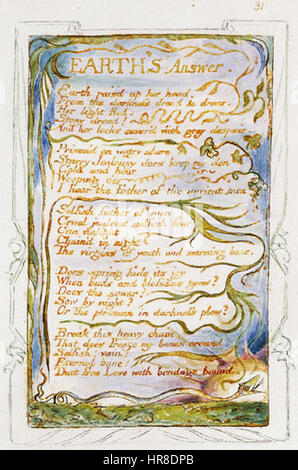 31
EARTH'S Answer.
Earth raised up her head,
From the darkness dread & drear.
Her light fled:
Stony dread!
And her locks cover'd with grey despair.
Prison'd on watry shore
Starry Jealousy does keep my den
Cold and hoar
Weeping o'er
I hear the father of the ancient men
Selfish father of men
Cruel jealous selfish fear
Can delight
Chain'd in night
The virgins of youth and morning bear.
Does spring hide its joy
When buds and blossoms grow?
Does the sower?
Sow by night?
Or the plowman in darkness plow?
Break this heavy chain,
That does freeze my bones around
Selfish! vain!
Eternal bane!
That free Love with bondage bound.
alamy
Image ID: HR8DPB
www.alamy.com